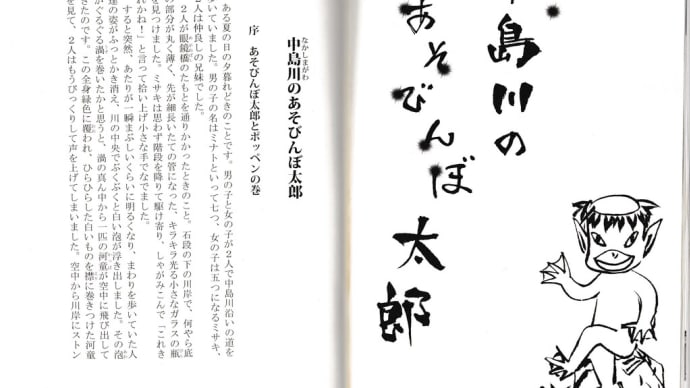 中島川の
あそびんぼ太郎
なかしまがわ
中島川のあそびんぼ太郎
序 あそびんぼ太郎とポッペンの巻
ある夏の日の夕暮れどきのことです。男の子と女の子が2人で中島川沿いの道を
歩いていました。男の子の名はミナトといって七つ、女の子は五つになるミサキ、
2人は仲良しの兄妹でした。
2人が眼鏡橋のたもとを通りかかったときのこと。石段の下の川岸で、何やら底
の部分が丸く薄く、先が細長いたての管になった、キラキラ光る小さなガラスの瓶
を見つけました。ミサキは思わず階段を降りて駆け寄り、しゃがみこんで「これき
れかね!」と言って拾い上げ小さな手でなでました。
すると突然、あたりが一瞬まぶしいくらいに明るくなり、まわりを歩いていた人
達の姿がふっとかき消え、川の中央でぶくぶくと白い泡が浮き出しました。その泡
がぐるぐる渦を巻いたかと思うと、渦の真ん中から一匹の河童が空中に飛び出して
きたのです。この全身緑色に覆われ、ひらひらした白いものを襟に巻きつけた河童
を見て、2人はもうびっくりして声を上げてしまいました。空中から川岸にストン